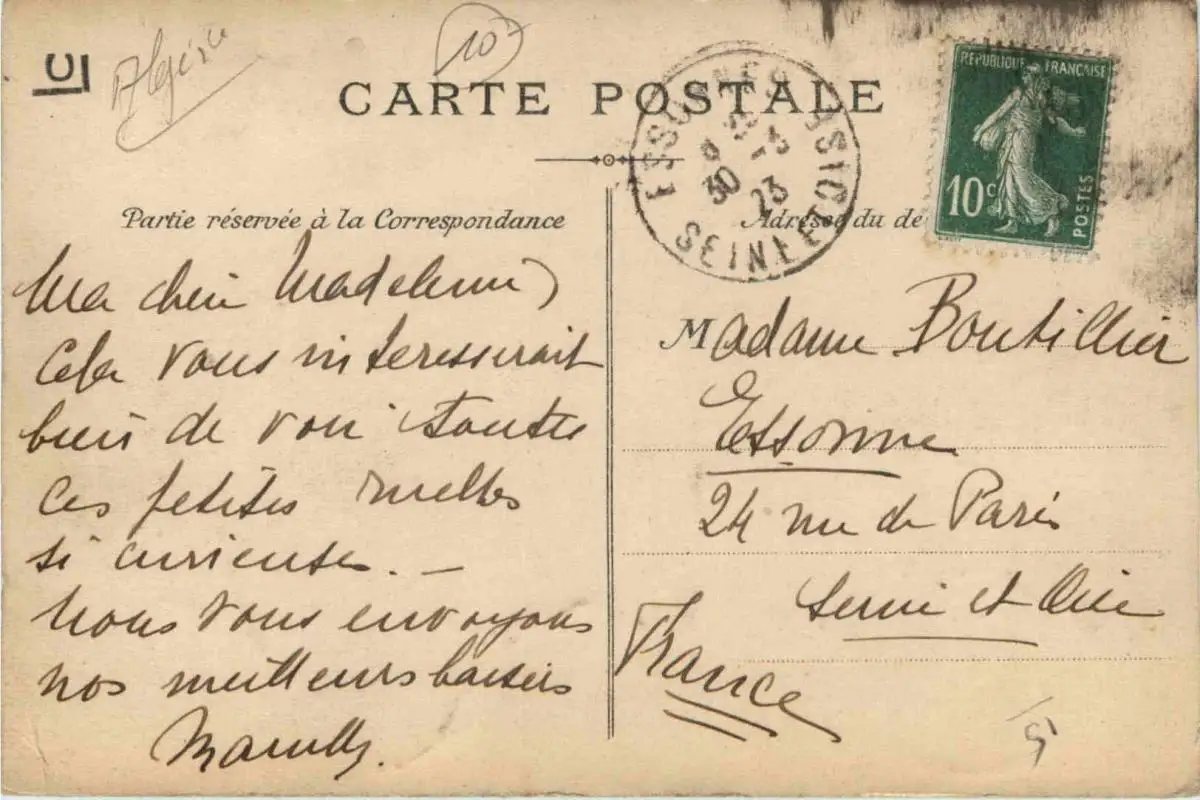 Algérie
10
CARTE POSTALE
ESSONNES
SEINE ET OISE
8 30
-3
23
RÉPUBLIQUE FRANÇAISE
10c
POSTES
Partie réservée à la Correspondance
Adresse du de
Ma chère Madeleine
Cela vous intéresserait
bien de voir toutes
ces petites ruelles
si curieuses. —
Nous vous envoyons
nos meilleurs baisers
Madame Boutillier
Essonne
24 rue de Paris
Seine et Oise
France